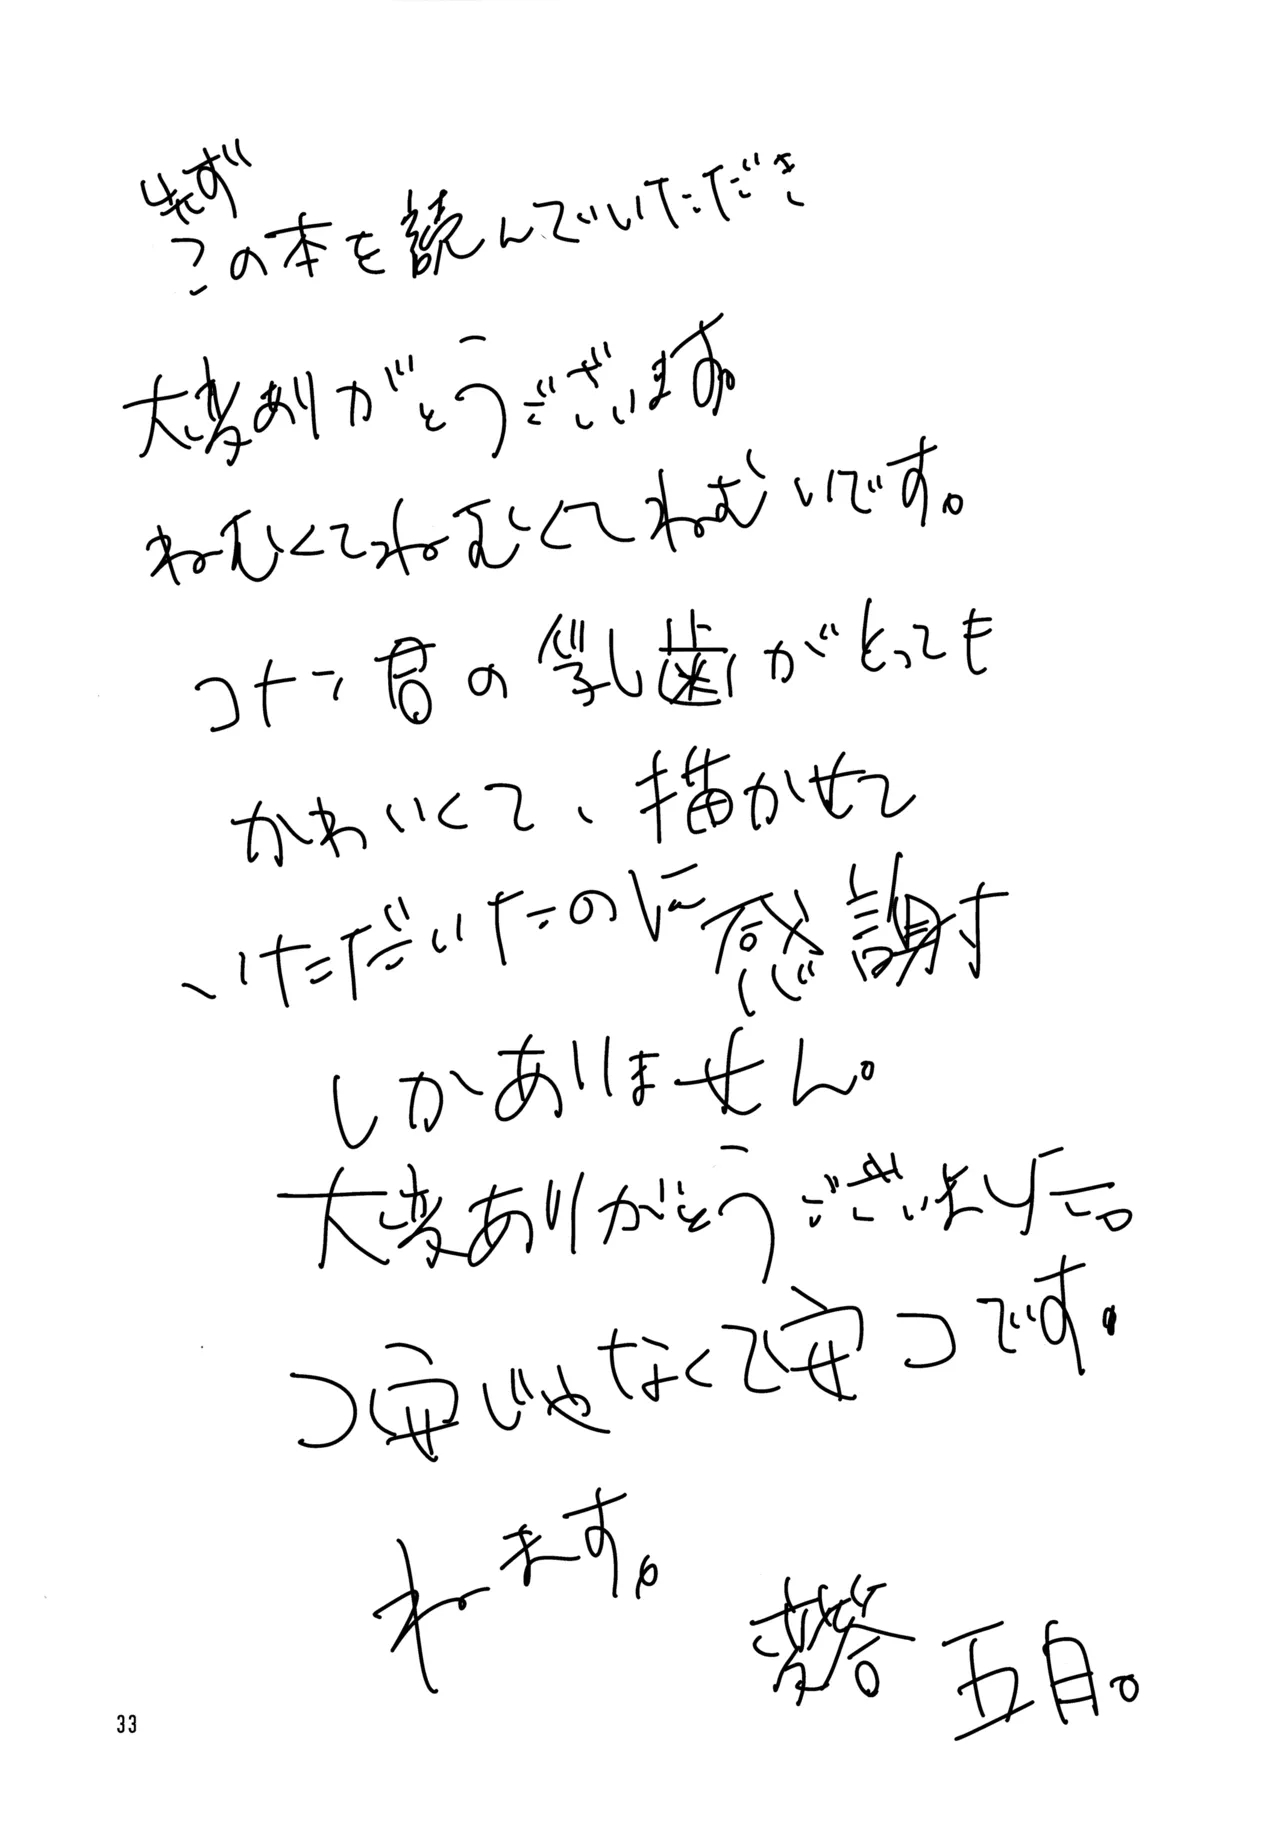 先ず
この本を読んでいただき
大変ありがとうございます。
ねむくてねむくてねむいです。
コナン君の乳歯がとっても
かわいくて、描かせて
いただいたのに感謝
しかありません。
大変ありがとうございました。
コ安じゃなくて安コです。
ねます。
五月。
33